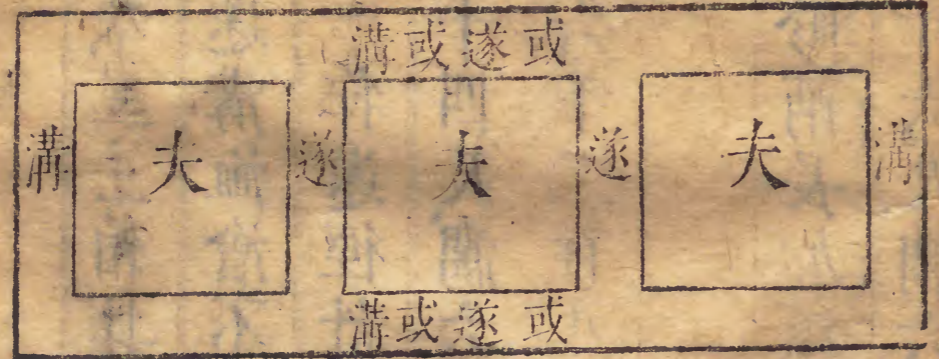 或遂或溝
溝 夫 遂 夫 遂 夫 溝
或遂或溝